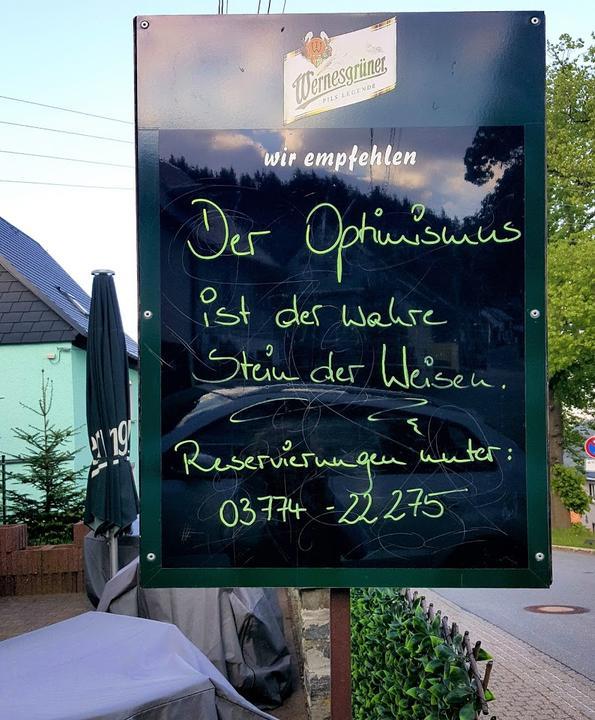 Wernesgrüner
PILS LEGENDE
wir empfehlen
Der Optimismus
ist der wahre
Stein der Weisen.
Reservierungen unter:
03774 - 22 275